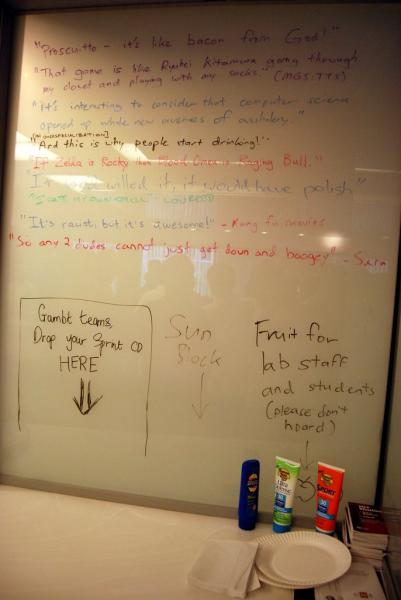 "Proscuitto - it's like bacon from God!"
"That game is like Ryuhei Kitamura going through
my closet and playing with my socks." (MGS:TTS)
"It's interesting to consider that computer science
opened up whole new avenues of assholery."
"And this is why people start drinking!"
"If Zelda is Rocky then is Raging Bull."
"If willed it, it would have polish"
"It's racist, but it's awesome!" - Kung fu movies
"So any 2 dudes cannot just get down and boogey" - Sara
Gambit teams,
Drop your Sprint CD
HERE
Sun
Block
Fruit for
lab staff
and students
(please don't
hoard)
SPORT
30